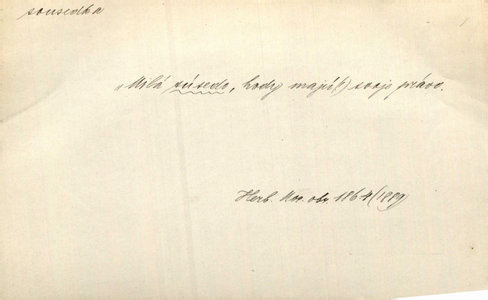 sousedka
Milá súsedo, hody majú(!) svoje právo.
Herb. Mor. obr. 1864 (1889)